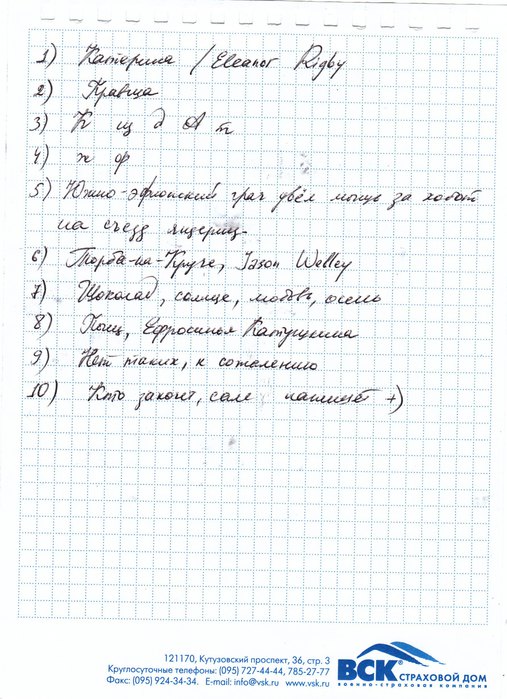 1) Катерина / Eleanor Rigby
2) Правша
3) К щ д А т
4) ж ф
5) Южно-эфиопский грач увёл мышь за хобот
на съезд ящериц.
6) Торба-на-Круче, Jason Walley
7) Шоколад, солнце, любовь, осень
8) Ёжищ, Ефросинья Катушкина
9) Нет таких, к сожалению
10) Кто захочет, сам напишет =)
121170, Кутузовский проспект, 36, стр. 3
Круглосуточные телефоны: (095) 727-44-44, 785-27-77
Факс: (095) 924-34-34. E-mail: info@vsk.ru www.vsk.ru
ВСК СТРАХОВОЙ ДОМ
военно-страховая компания